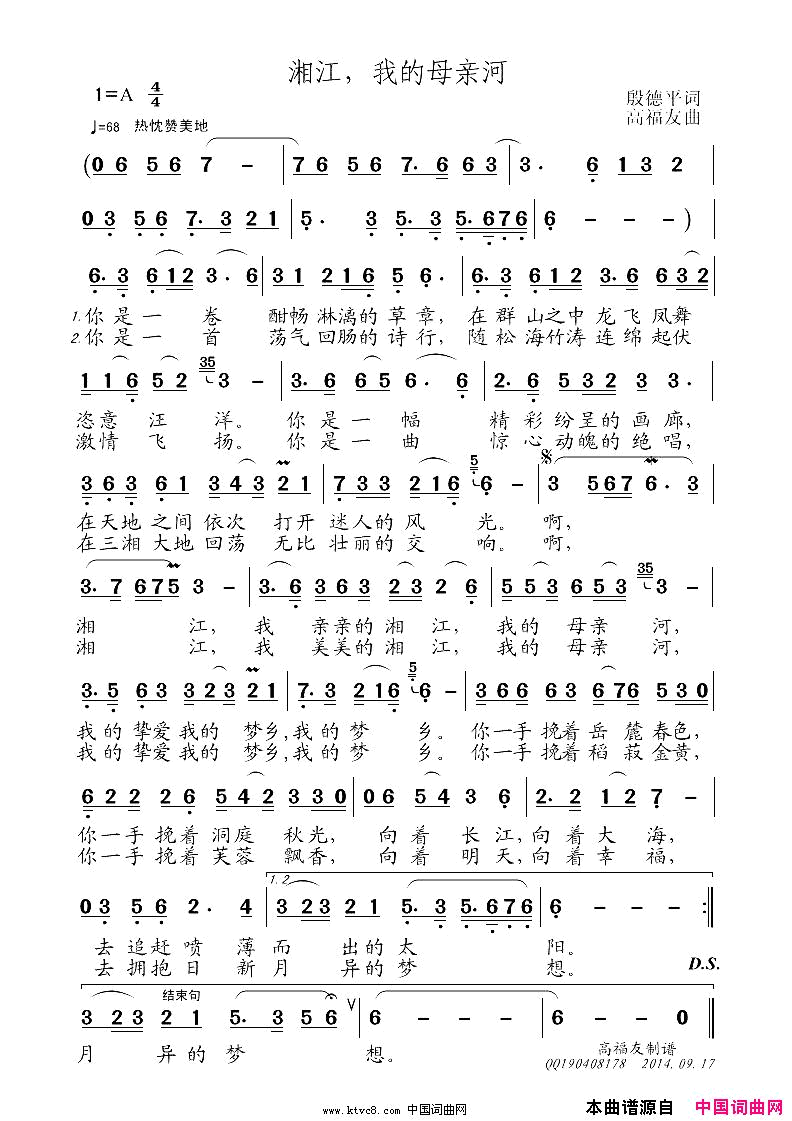 湘江，我的母亲河
1=A 4/4
殷德平词
高福友曲
♩=68 热忱赞美地
(0 6 5 6 7 - | 7 6 5 7. 6 6 3 | 3. 6 1 3 2 |
0 3 5 6 7. 3 2 1 | 5. 3 5. 3 5. 6 7 6 | 6 - - - )
6. 3 6 1 2 3. 6 | 3 1 2 1 6 5 6. | 6. 3 6 1 2 3. 6 6 3 2 |
1.你是一 卷 酣畅淋漓的草章，在群山之中龙飞凤舞
2.你是一 首 荡气回肠的诗行，随松海竹涛连绵起伏
1 1 6 5 2 35 3 - | 3. 6 6 5 6. 6 | 2. 6 5 3 2 3. |
恣意汪 洋。 你是一 幅 精彩纷呈的画廊，
激情飞 扬。 你是一 曲 惊心动魄的绝唱，
3 6 3 6 1 3 4 3 2 1 | 7 3 3 2 1 6 5 6 - | 3 5 6 7 6. 3 |
在天地之间依次 打开迷人的风 光。啊，
在三湘大地回荡 无比壮丽的交 响。啊，
3. 7 6 7 5 3 - | 3. 6 3 6 3 2 3 2 6 | 5 5 3 6 5 3 35 3 - |
湘 江，我 亲亲的湘 江，我的 母亲 河，
湘 江，我 美美的湘 江，我的 母亲 河，
3. 5 6 3 3 2 3 2 1 | 7. 3 2 1 6 5 6 - | 3 6 6 6 3 6 2 6 5 3 0 |
我的挚爱我的 梦乡，我的梦 乡。你一手挽着岳麓春色，
我的挚爱我的 梦乡，我的梦 乡。你一手挽着稻菽金黄，
6 2 2 2 6 5 4 2 3 3 0 | 0 6 5 4 3 6 | 2. 2 1 2 7 - |
你一手挽着洞庭 秋光， 向着 长江，向着大 海，
你一手挽着芙蓉 飘香， 向着 明天，向着幸 福，
0 3 5 6 2. 4 | 1.2 3 2 3 2 1 5. 3 5. 6 7 6 | 6 - - - :||
去追赶喷 薄而 出的太 阳。
去拥抱日 新月 异的梦 想。 D.S.
结束句
3 2 3 2 1 5. 3 5 6 ∨ | 6 - - - | 6 - - 0 ||
月 异的梦 想。
高福友制谱
QQ190408178 2014.09.17
www.ktvc8.com 中国词曲网
本曲谱源自 中国词曲网